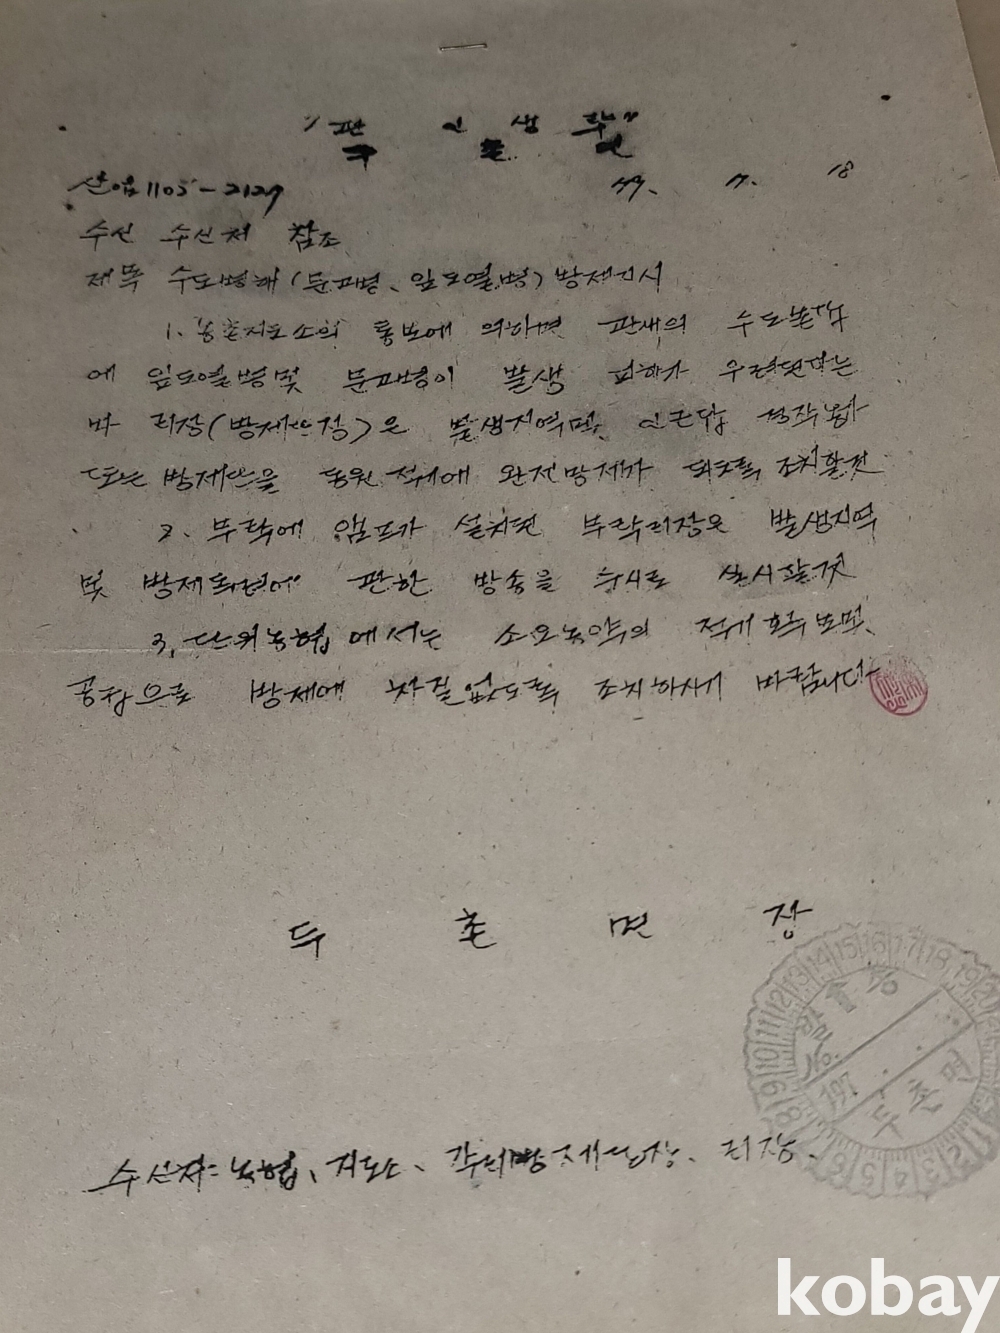 "관인생략"
산업1105-2127 77. 7. 18
수신 수신처 참조
제목 수도병해(문고병, 잎도열병) 방제지시
1. 농촌지도소의 통보에 의하면 관내의 수도본답
에 잎도열병및 문고병이 발생 피해가 우려된다는
바 리장(방제단장)은 발생지역및 인근답 경작농가
또는 방제단을 동원 적기에 완전방제가 되도록 조치할것
2. 부락에 앰프가 설치된 부락리장은 발생지역
및 방제독려에 관한 방송을 수시로 실시할것
3. 단위농협에서는 소요농약의 적기 확보및
공급으로 방제에 차질없도록 조치하시기 바랍니다
두촌면장
197 두촌면
수신처: 농협, 지도소, 각리방제단장, 리장.
kobay